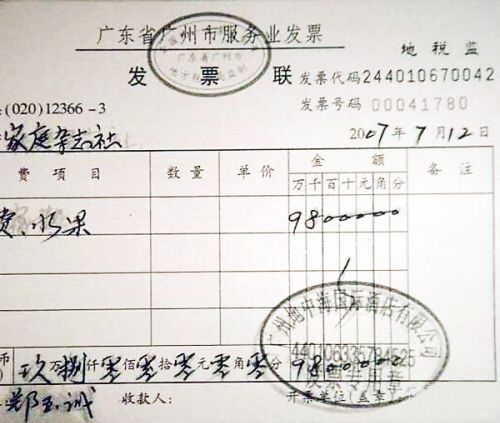 广东省广州市服务业发票
发票联
地税监
发票代码244010670042
发票号码00041780
:(020)12366-3
家庭杂志社
2007年7月12日
费项目 数量 单价 金额 备注
万千百十元角分
水果 9800000
广州地中海国际酒店有限公司
发票专用章
玖万捌仟零佰零拾零元零角零分 9800000
郑玉诚 收款人: 开票单位(盖章)